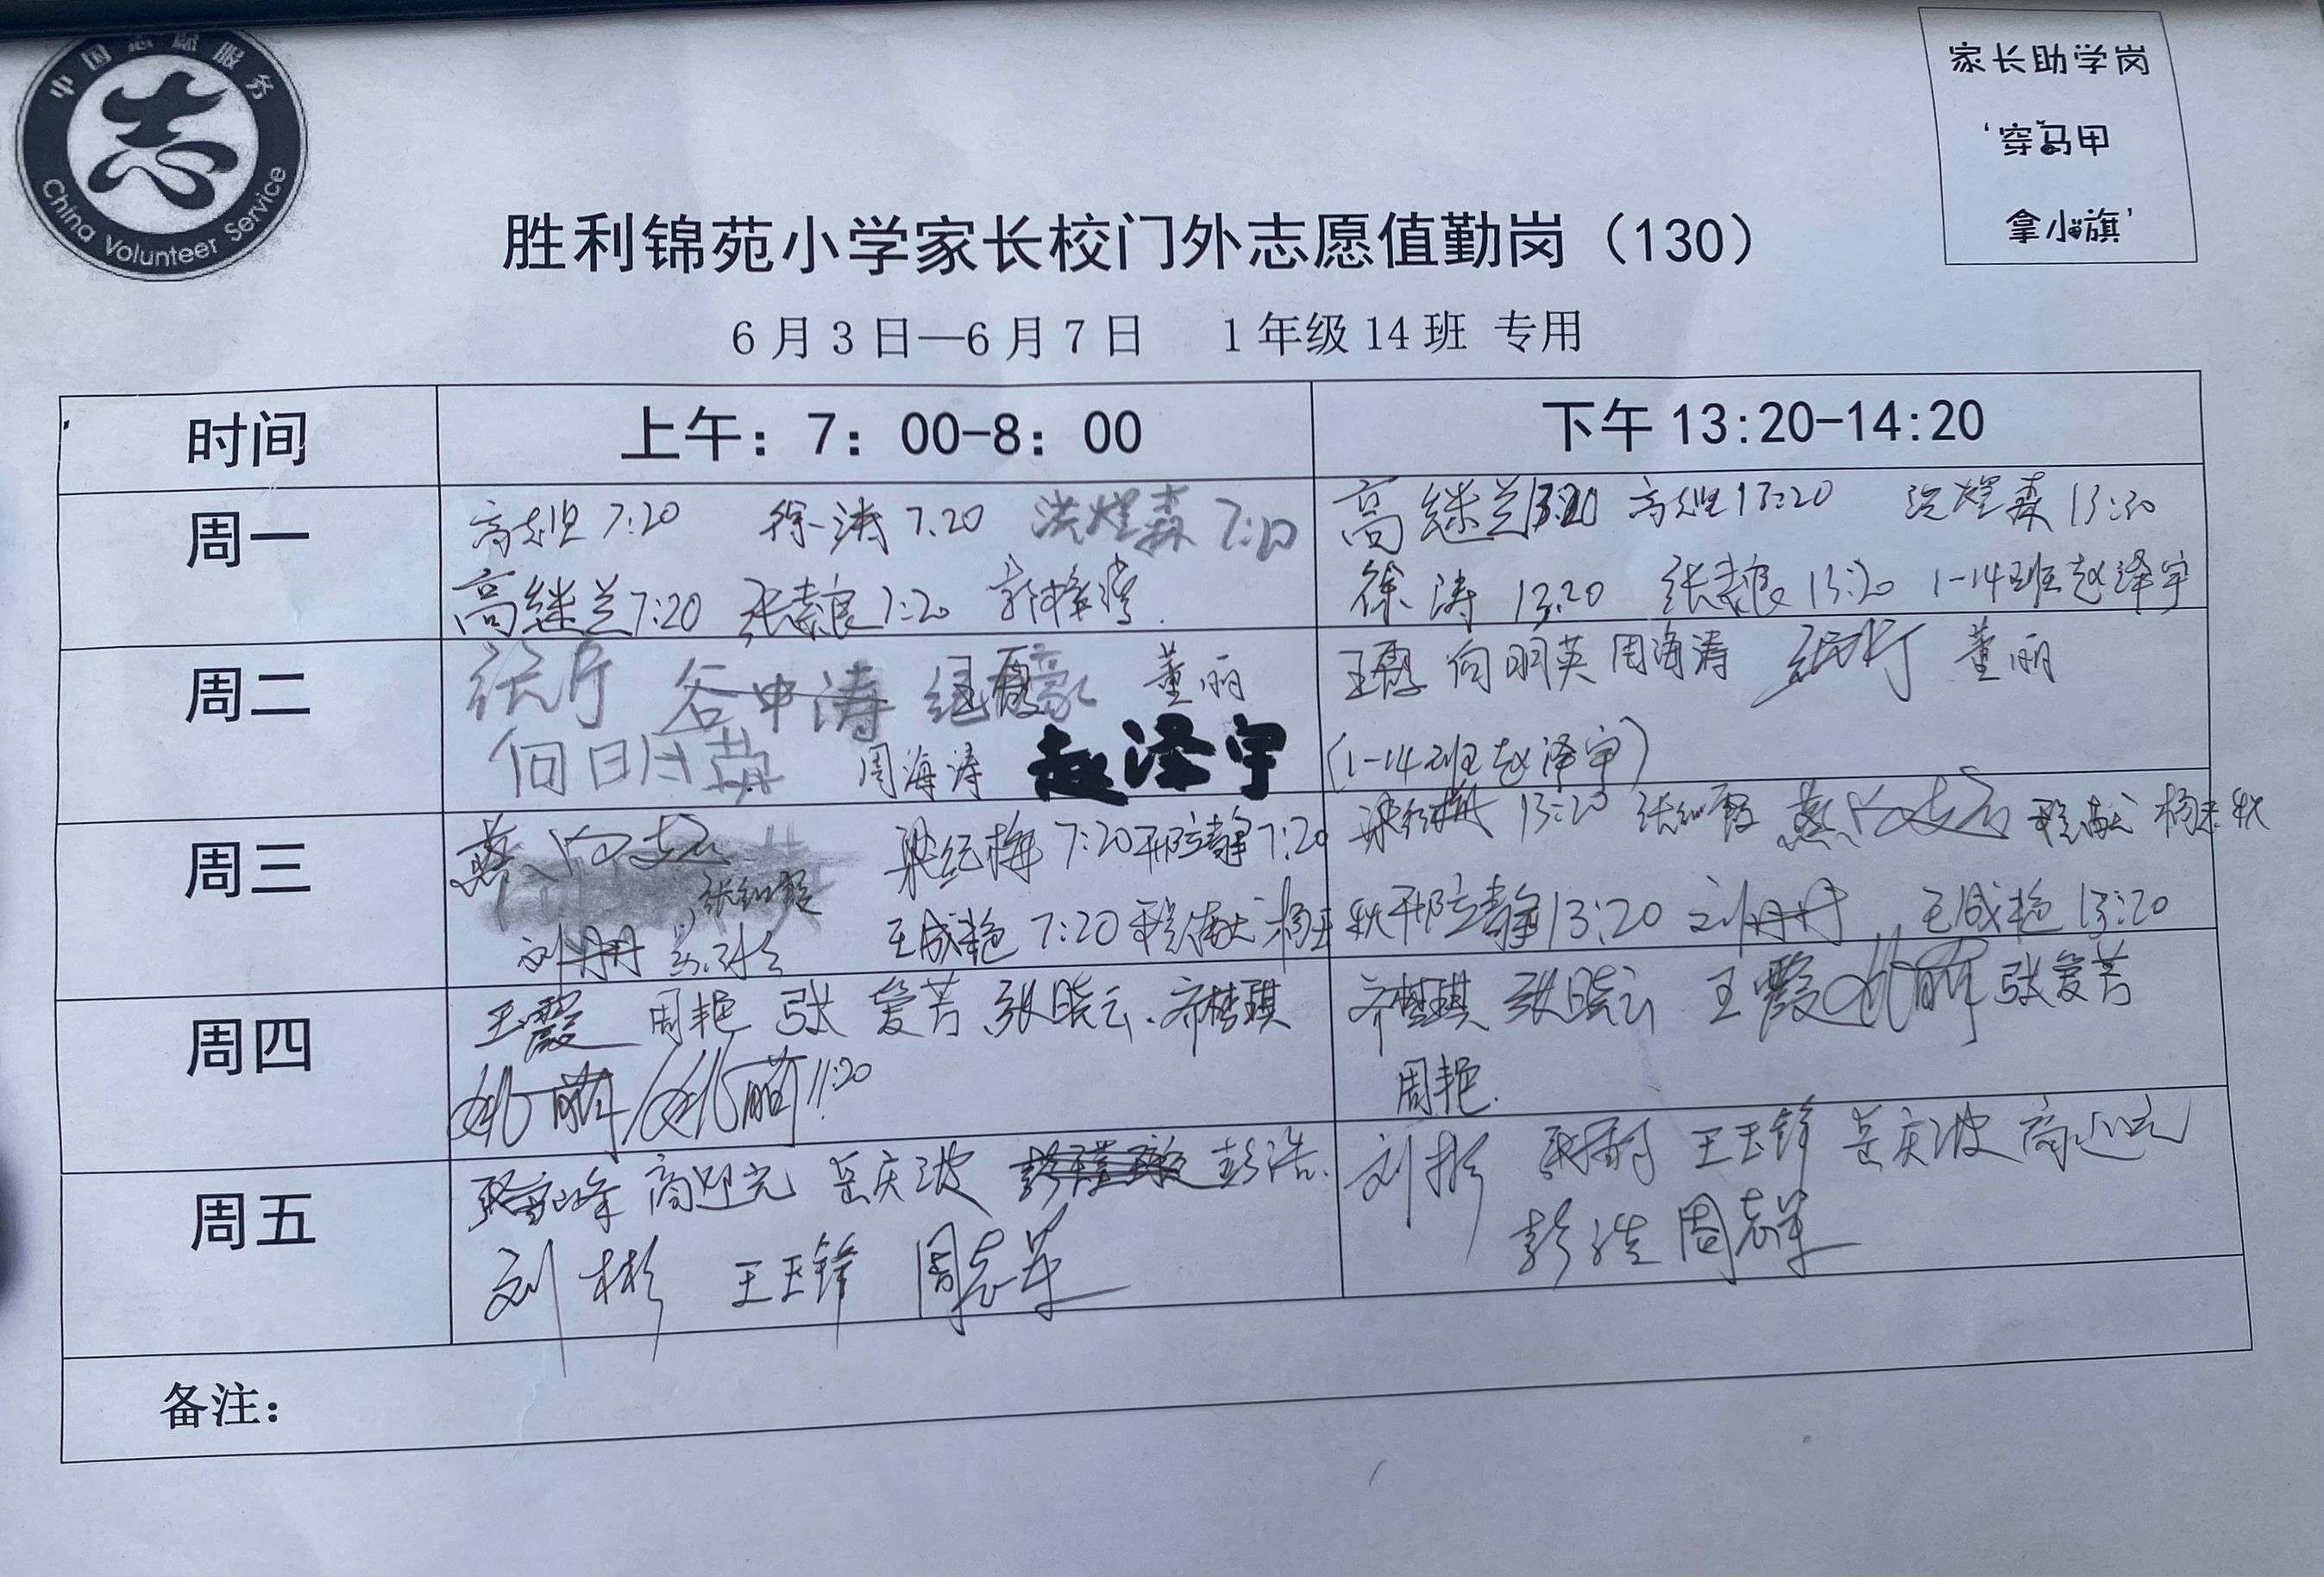 中国志愿服务
志
China Volunteer Service
家长助学岗
‘穿马甲
拿小旗’
胜利锦苑小学家长校门外志愿值勤岗（130）
6月3日—6月7日 1年级14班 专用
时间 上午：7：00-8：00 下午13:20-14:20
周一
7:20 徐涛 7.20 洪煜森 7:20
高继兰 7:20 7:20
高继兰 13:20 13:20 洪煜森 13:20
徐涛 13:20 13:20 1-14班赵泽宇
周二
张厅 谷中涛 董丽
向明英 周海涛 赵泽宇
王霞 向明英 周海涛 董丽
(1-14班赵泽宇)
周三
梁纪梅 7:20 邢立静 7:20
刘丹丹 王成艳 7:20
梁纪梅 13:20
邢立静 13:20 刘丹丹 王成艳 13:20
周四
王霞 周艳 张爱芳 张晓云 齐梦琪
11:20
齐梦琪 张晓云 王霞 张爱芳
周艳
周五
商迎光 岳庆波 彭浩
刘彬 王玉锋 周志军
刘彬 王玉锋 岳庆波 商迎光
彭浩 周志军
备注：